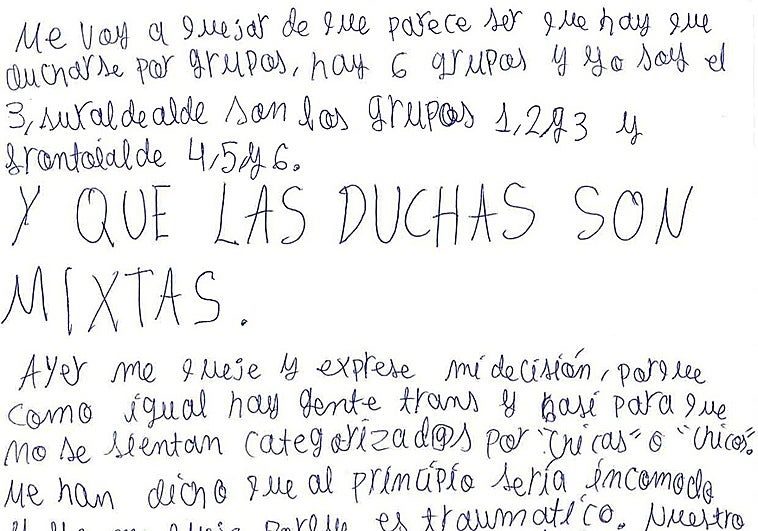 Me voy a quejar de que parece ser que hay que
ducharse por grupos, hay 6 grupos y yo soy el
3, suraldealde son los grupos 1,2 y 3 y
frontoialde 4,5 y 6.
Y QUE LAS DUCHAS SON
MIXTAS.
Ayer me queje y exprese mi decisión, porque
como igual hay gente trans y para que
no se sientan categorizad@s por "chicas" o "chicos".
Me han dicho que al principio sería incomodo
es traumatico. Nuestro